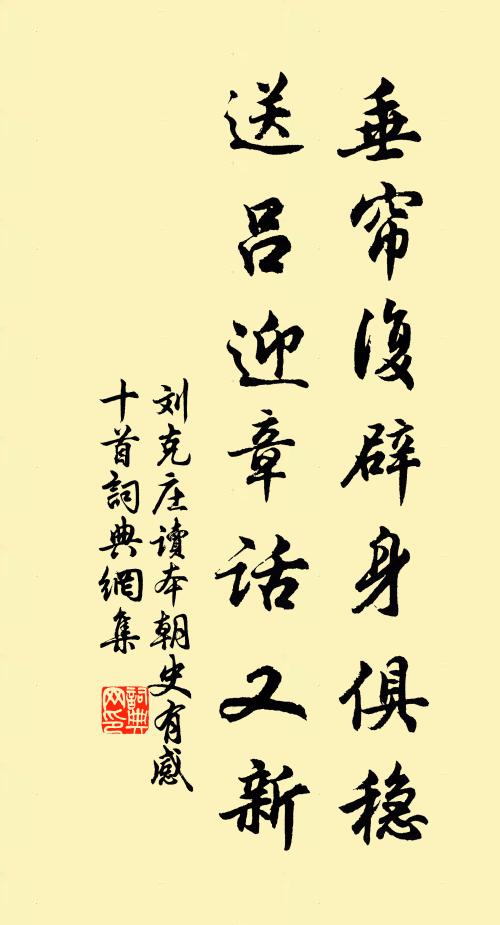 垂帘復辟身俱稳
送吕迎章话又新
刘克庄讀本朝史有感
十首詞典網集
詞典
网印